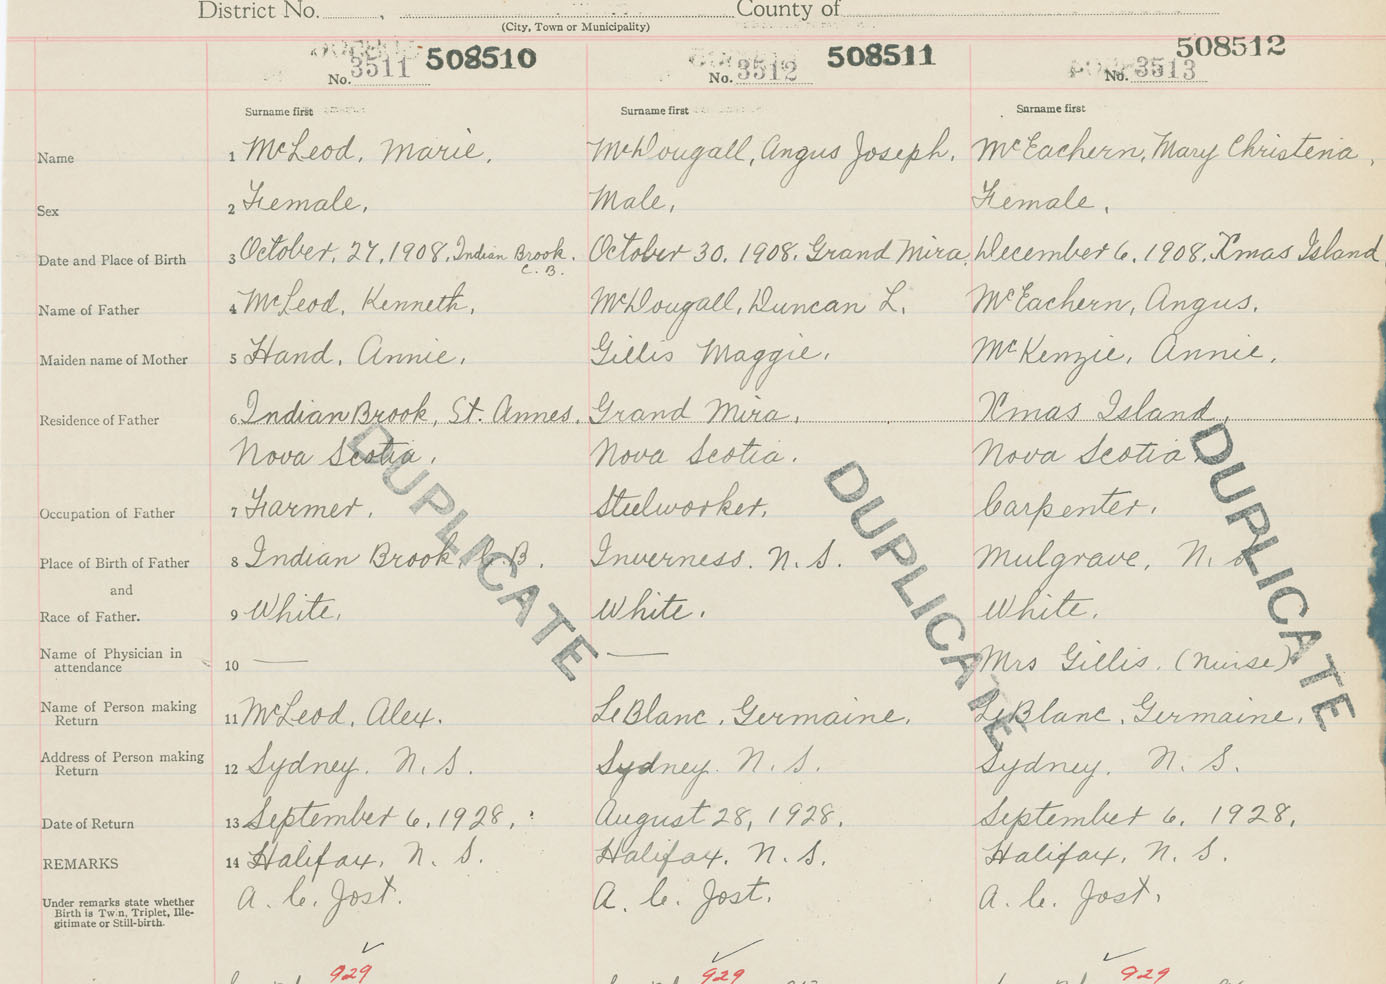 District No. , County of
(City, Town or Municipality)
No. 3511 508510 No. 3512 508511 No. 3513 508512
Surname first Surname first Surname first
Name 1 McLeod, Marie. McDougall, Angus Joseph. McEachern, Mary Christena,
Sex 2 Female. Male. Female.
Date and Place of Birth 3 October, 27, 1908, Indian Brook. C. B. October 30. 1908. Grand Mira. December 6. 1908. Xmas Island
Name of Father 4 McLeod, Kenneth. McDougall, Duncan L. McEachern, Angus.
Maiden name of Mother 5 Hand, Annie. Gillis Maggie. McKenzie, Annie.
Residence of Father 6 Indian Brook, St. Annes. Grand Mira. Xmas Island.
Nova Scotia. Nova Scotia. Nova Scotia
Occupation of Father 7 Farmer. Steelworker. Carpenter.
Place of Birth of Father 8 Indian Brook, C. B. Inverness. N. S. Mulgrave, N. S
and
Race of Father. 9 White. White. White.
Name of Physician in attendance 10 — — Mrs Gillis. (Nurse)
Name of Person making Return 11 McLeod, Alex. LeBlanc, Germaine. LeBlanc, Germaine.
Address of Person making Return 12 Sydney. N. S. Sydney. N. S. Sydney. N. S.
Date of Return 13 September 6, 1928. August 28, 1928. September 6, 1928.
REMARKS 14 Halifax, N. S. Halifax, N. S. Halifax, N. S.
Under remarks state whether Birth is Twin, Triplet, Ille-gitimate or Still-birth. A. C. Jost. A. C. Jost. A. C. Jost.
DUPLICATE DUPLICATE DUPLICATE
929 929 929